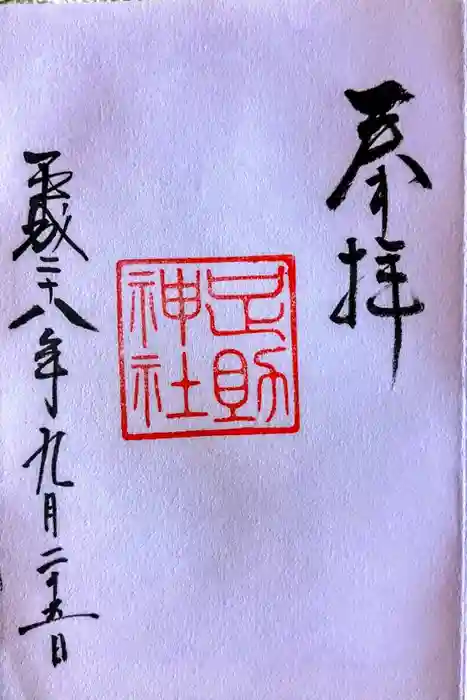 奉拝
足助
神社
平成二十八年九月二十五日